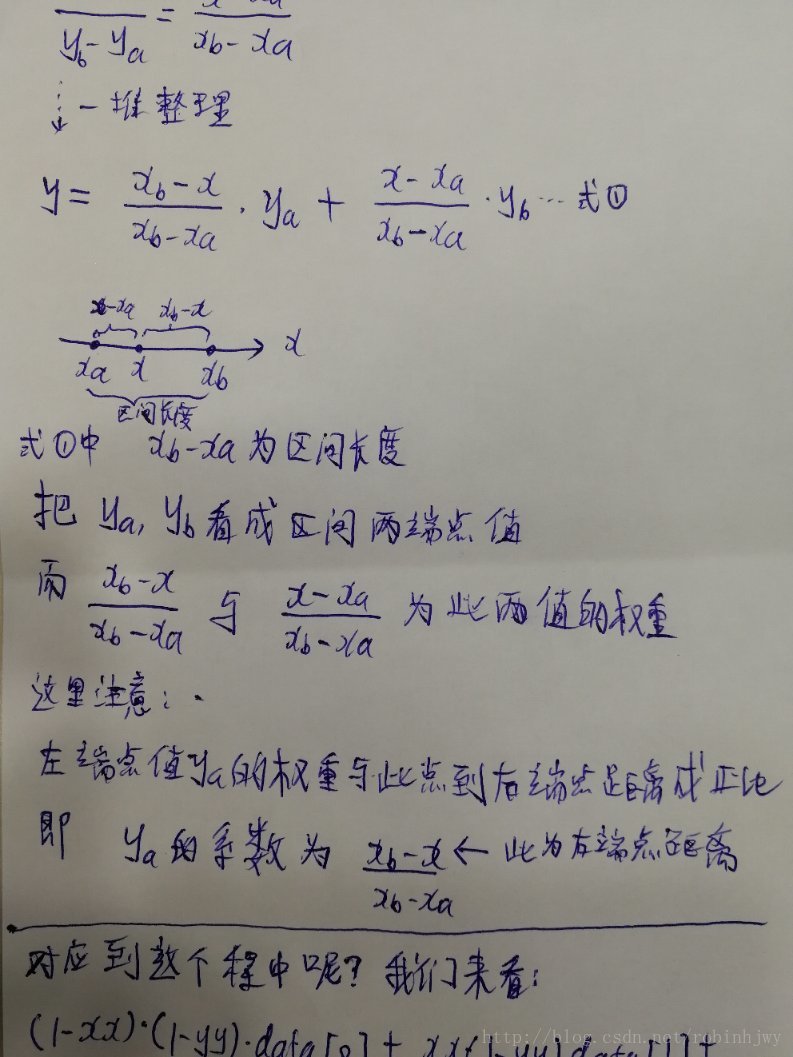 y_b - y_a = x_b - x_a
一堆整理
y = (x_b - x)/(x_b - x_a) · y_a + (x - x_a)/(x_b - x_a) · y_b ··· 式①
x-x_a x_b-x
x_a x x_b x
区间长度
式①中 x_b-x_a 为区间长度
把 y_a, y_b 看成区间两端点值
而 (x_b - x)/(x_b - x_a) 与 (x - x_a)/(x_b - x_a) 为此两值的权重
这里注意:
左端点值y_a的权重与此点到右端点距离成正比
即 y_a的系数为 (x_b - x)/(x_b - x_a) ← 此为右端点距离
对应到 个程中呢? 我们来看:
(1-xx)·(1-yy)·data[0] + xx(1-yy)data[1]+
http://blog.csdn.net/robinhjwy